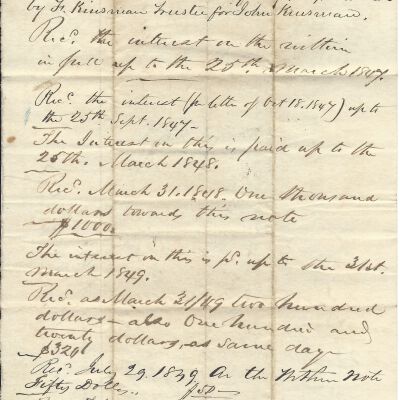 by F. Kinsman Trustee for John Kinsman.
Rec.d the interest on the within
in full up to the 25th. March 1847.
Rec.d the interest (per letter of Oct 18. 1847) up to
the 25th Sept. 1847-
The Interest in this is paid up to the
25th. March 1848.
Rec.d March 31. 1848. One thousand
dollars towards this note
$1000.
The interest on this is pd. up to the 31st.
March 1849.
Rec.d as March 31/49 two hundred
dollars - also One hundred and
twenty dollars, as same day
$320
Rec. July 29. 1849 On the Within Note
Fifty Dolls.. $50-